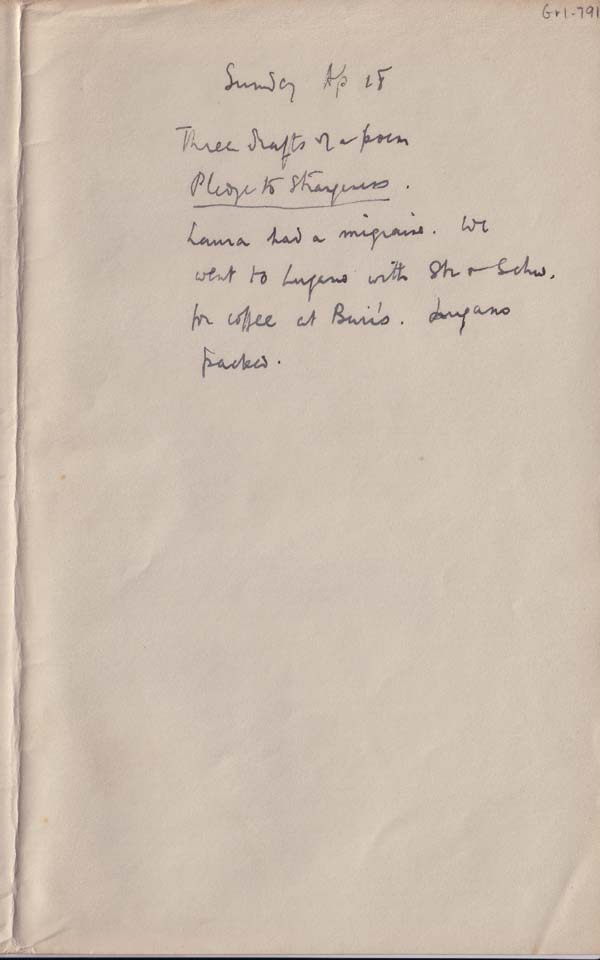 Gr1-791
Sunday Ap 18
Three drafts of a poem
Pledge to Strangeness.
Laura had a migraine. We
went to Lugano with Str & Schw.
for coffee at Buri's. Lugano
packed.